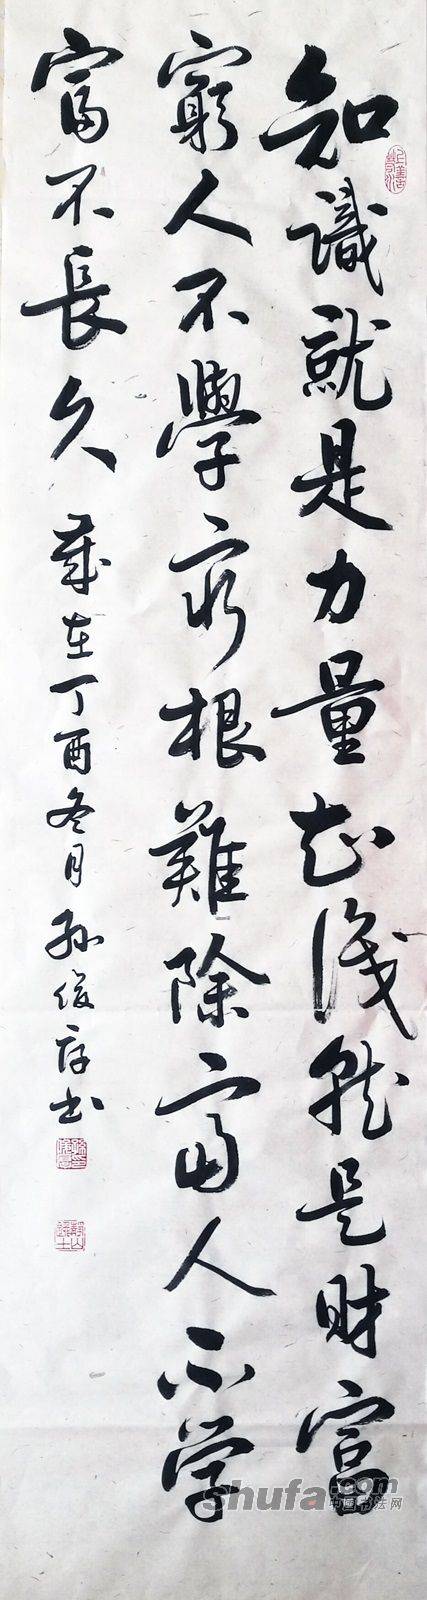 知識就是力量知識就是財富
窮人不學窮根難除富人不学
富不長久 歲在丁酉冬月孙俊存书
上善若水
shufa.com
中国书法网